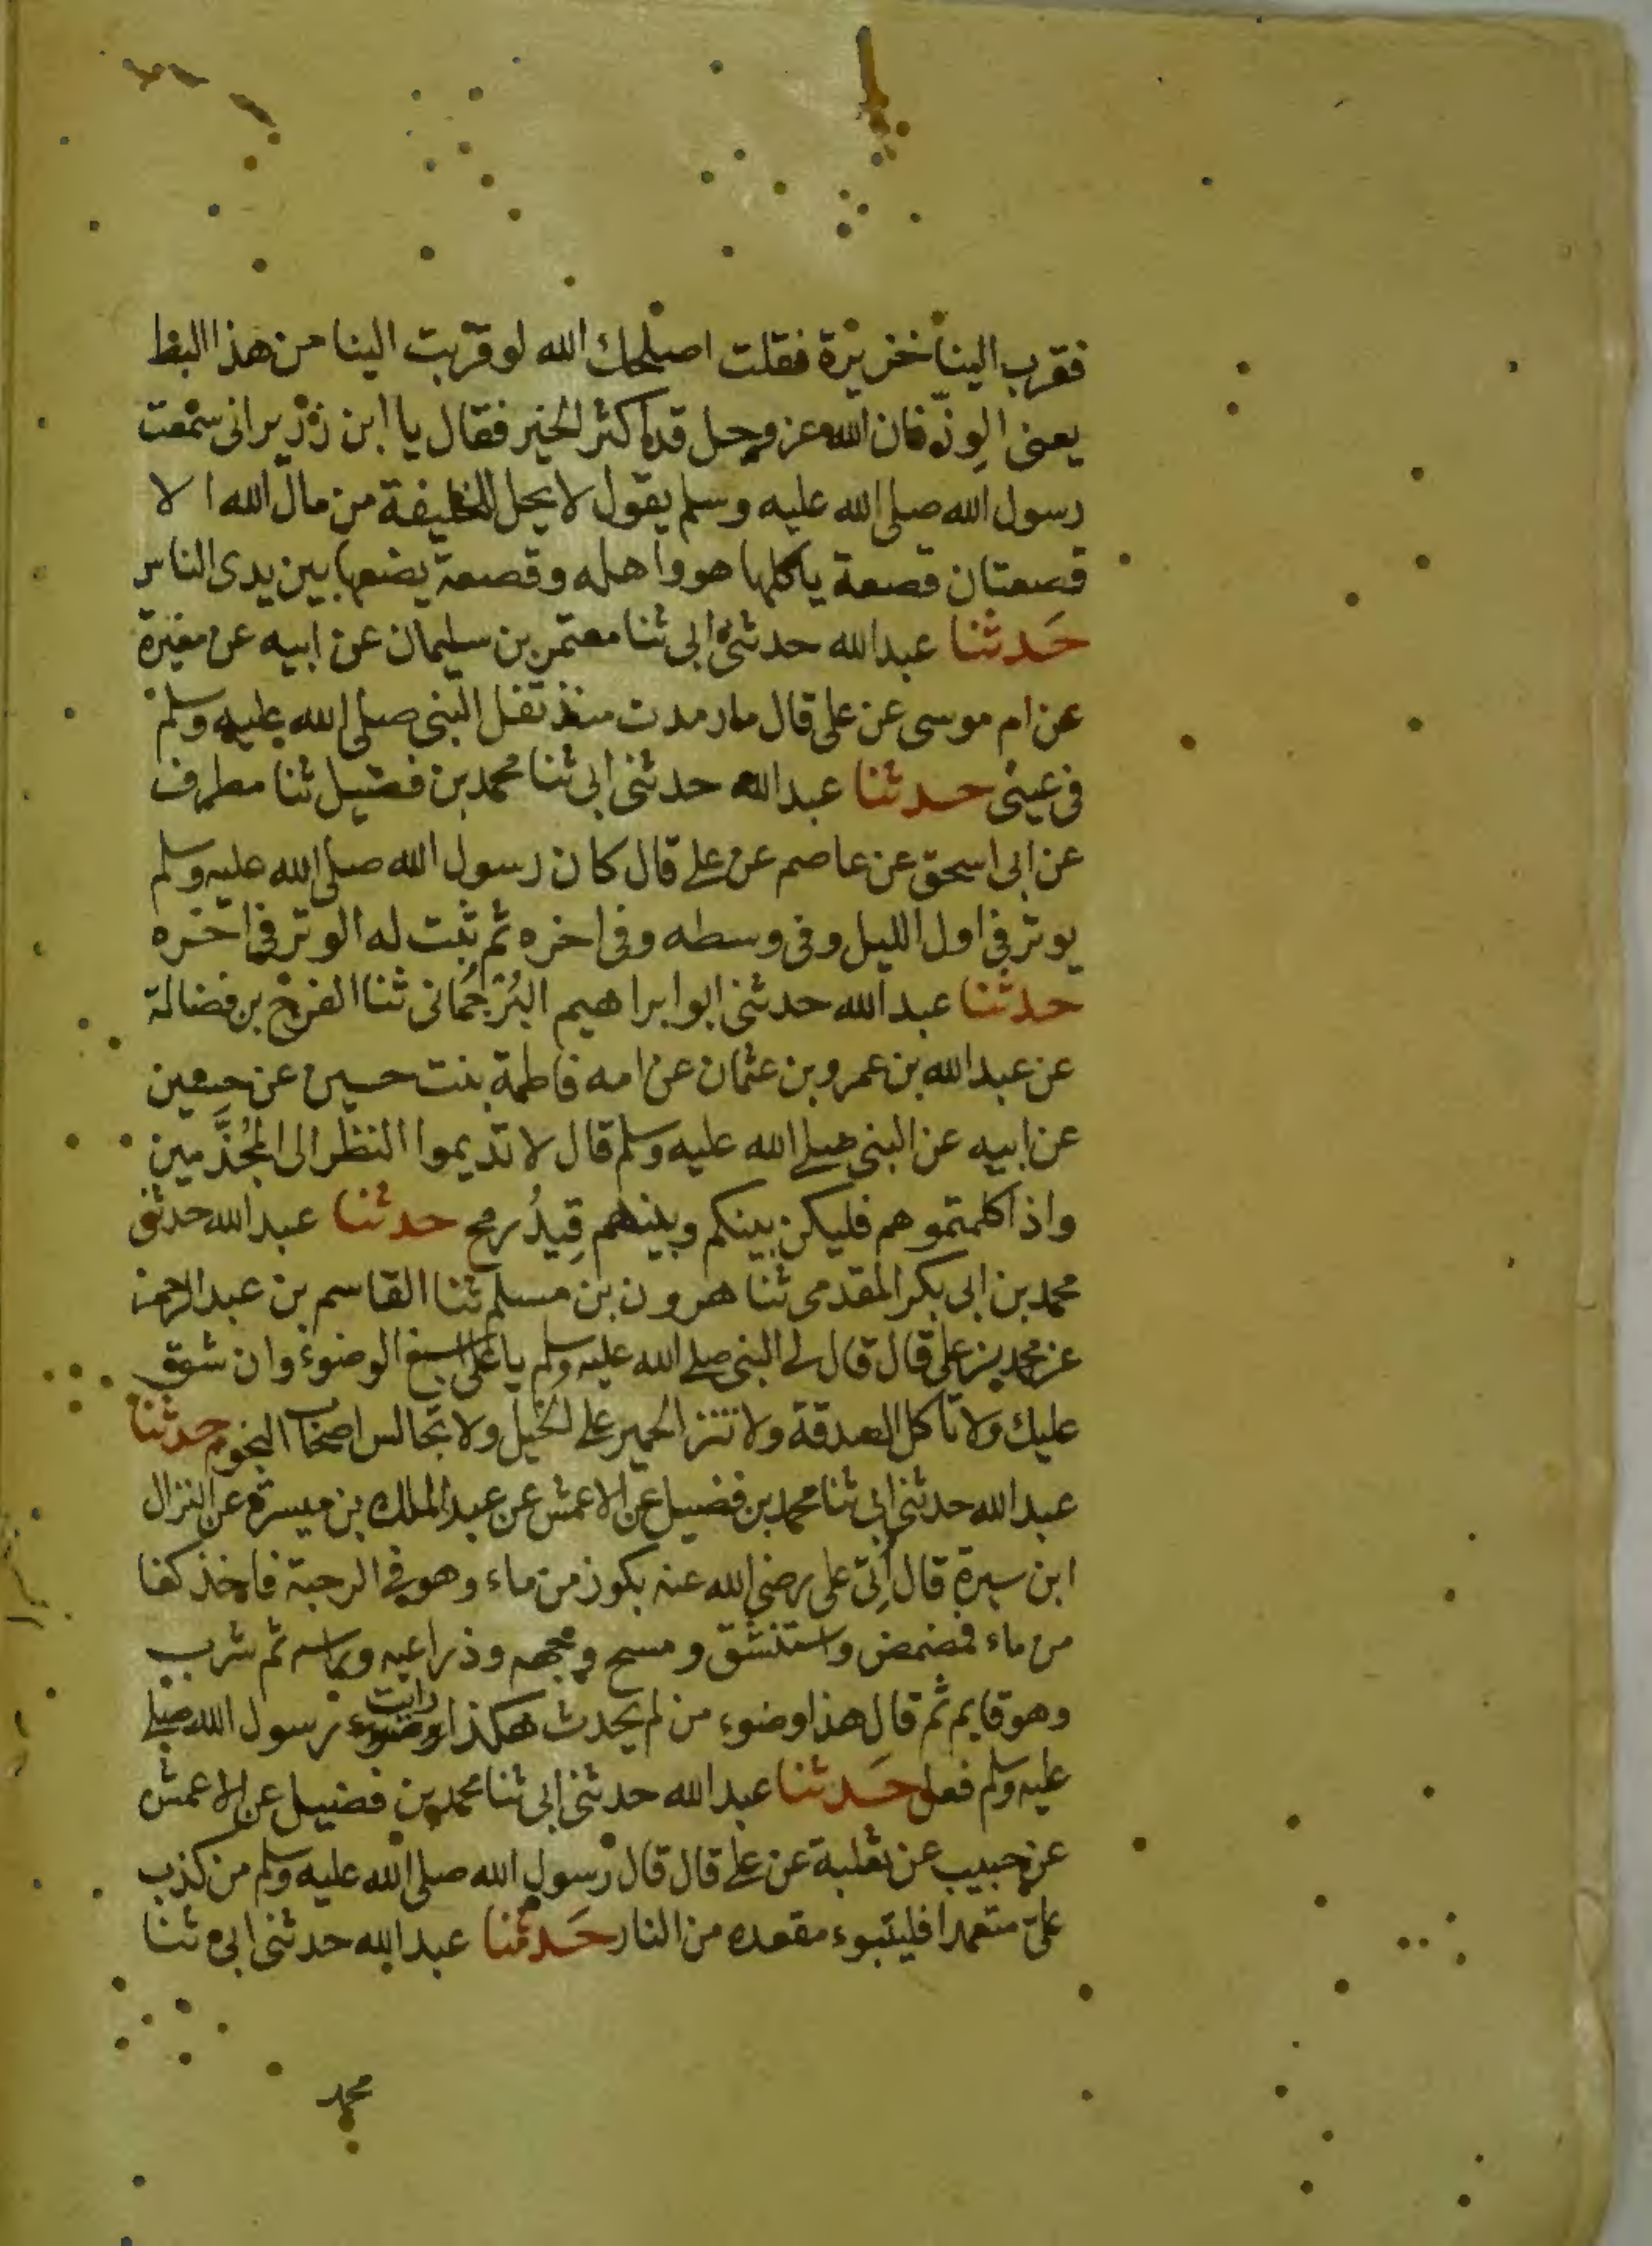 فقرب الينا خزيرة فقلت اصلحك الله لو قربت الينا من هذا البط
يعنى الوزّ فان الله عز وجل قد اكثر الخير فقال يا ابن زرير انى سمعت
رسول الله صلى الله عليه وسلم يقول لا يحل للخليفة من مال الله الا
قصعتان قصعة ياكلها هو واهله وقصعة يضعها بين يدى الناس
حَدثنا عبد الله حدثنى ابى ثنا معتمر بن سليمان عن ابيه عن مغيرة
عن ام موسى عن على قال ما رمدت منذ تفل النبى صلى الله عليه وسلم
فى عينى حدثنا عبد الله حدثنى ابى ثنا محمد بن فضيل ثنا مطرف
عن ابى اسحق عن عاصم عن على قال كان رسول الله صلى الله عليه وسلم
يوتر فى اول الليل وفى وسطه وفى اخره ثم ثبت له الوتر فى اخره
حدثنا عبد الله حدثنى ابو ابراهيم التُرْجُمانى ثنا الفرج بن فضالة
عن عبد الله بن عمرو بن عثمان عن امه فاطمة بنت حسين عن حسين
عن ابيه عن النبى صلى الله عليه وسلم قال لا تديموا النظر الى المُجُذَّمين
واذا كلمتموهم فليكن بينكم وبينهم قِيدُ رمح حدثنا عبد الله حدثنى
محمد بن ابى بكر المقدمى ثنا هرون بن مسلم ثنا القاسم بن عبد الرحمن
عن محمد بن على قال قال لى النبى صلى الله عليه وسلم يا على اسبغ الوضوء وان شق
عليك ولا تاكل الصدقة ولا تنز الحمير على الخيل ولا تجالس اصحاب النجوم حدثنا
عبد الله حدثنى ابى ثنا محمد بن فضيل عن الاعمش عن عبد الملك بن ميسرة عن النزال
ابن سبرة قال اُتِى على رضى الله عنه بكوز من ماء وهو فى الرحبة فاخذ كفا
من ماء فمضمض واستنشق ومسح وجهه وذراعيه وراسه ثم شرب
وهو قايم ثم قال هذا وضوء من لم يحدث هكذا رايت رسول الله صلى
عليه وسلم فعل حَدثنا عبد الله حدثنى ابى ثنا محمد بن فضيل عن الاعمش
عن حبيب عن ثعلبة عن على قال قال رسول الله صلى الله عليه وسلم من كذب
علىّ متعمدا فليتبوء مقعده من النار حَدثنا عبد الله حدثنى ابى ثنا
محمد